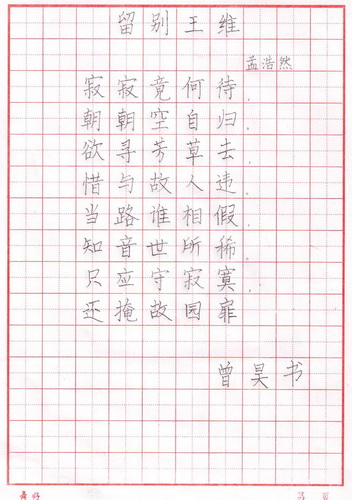 留别王维
孟浩然
寂寂竟何待.
朝朝空自归.
欲寻芳草去.
惜与故人违.
当路谁相假.
知音世所稀.
只应守寂寞.
还掩故园扉
曾昊书